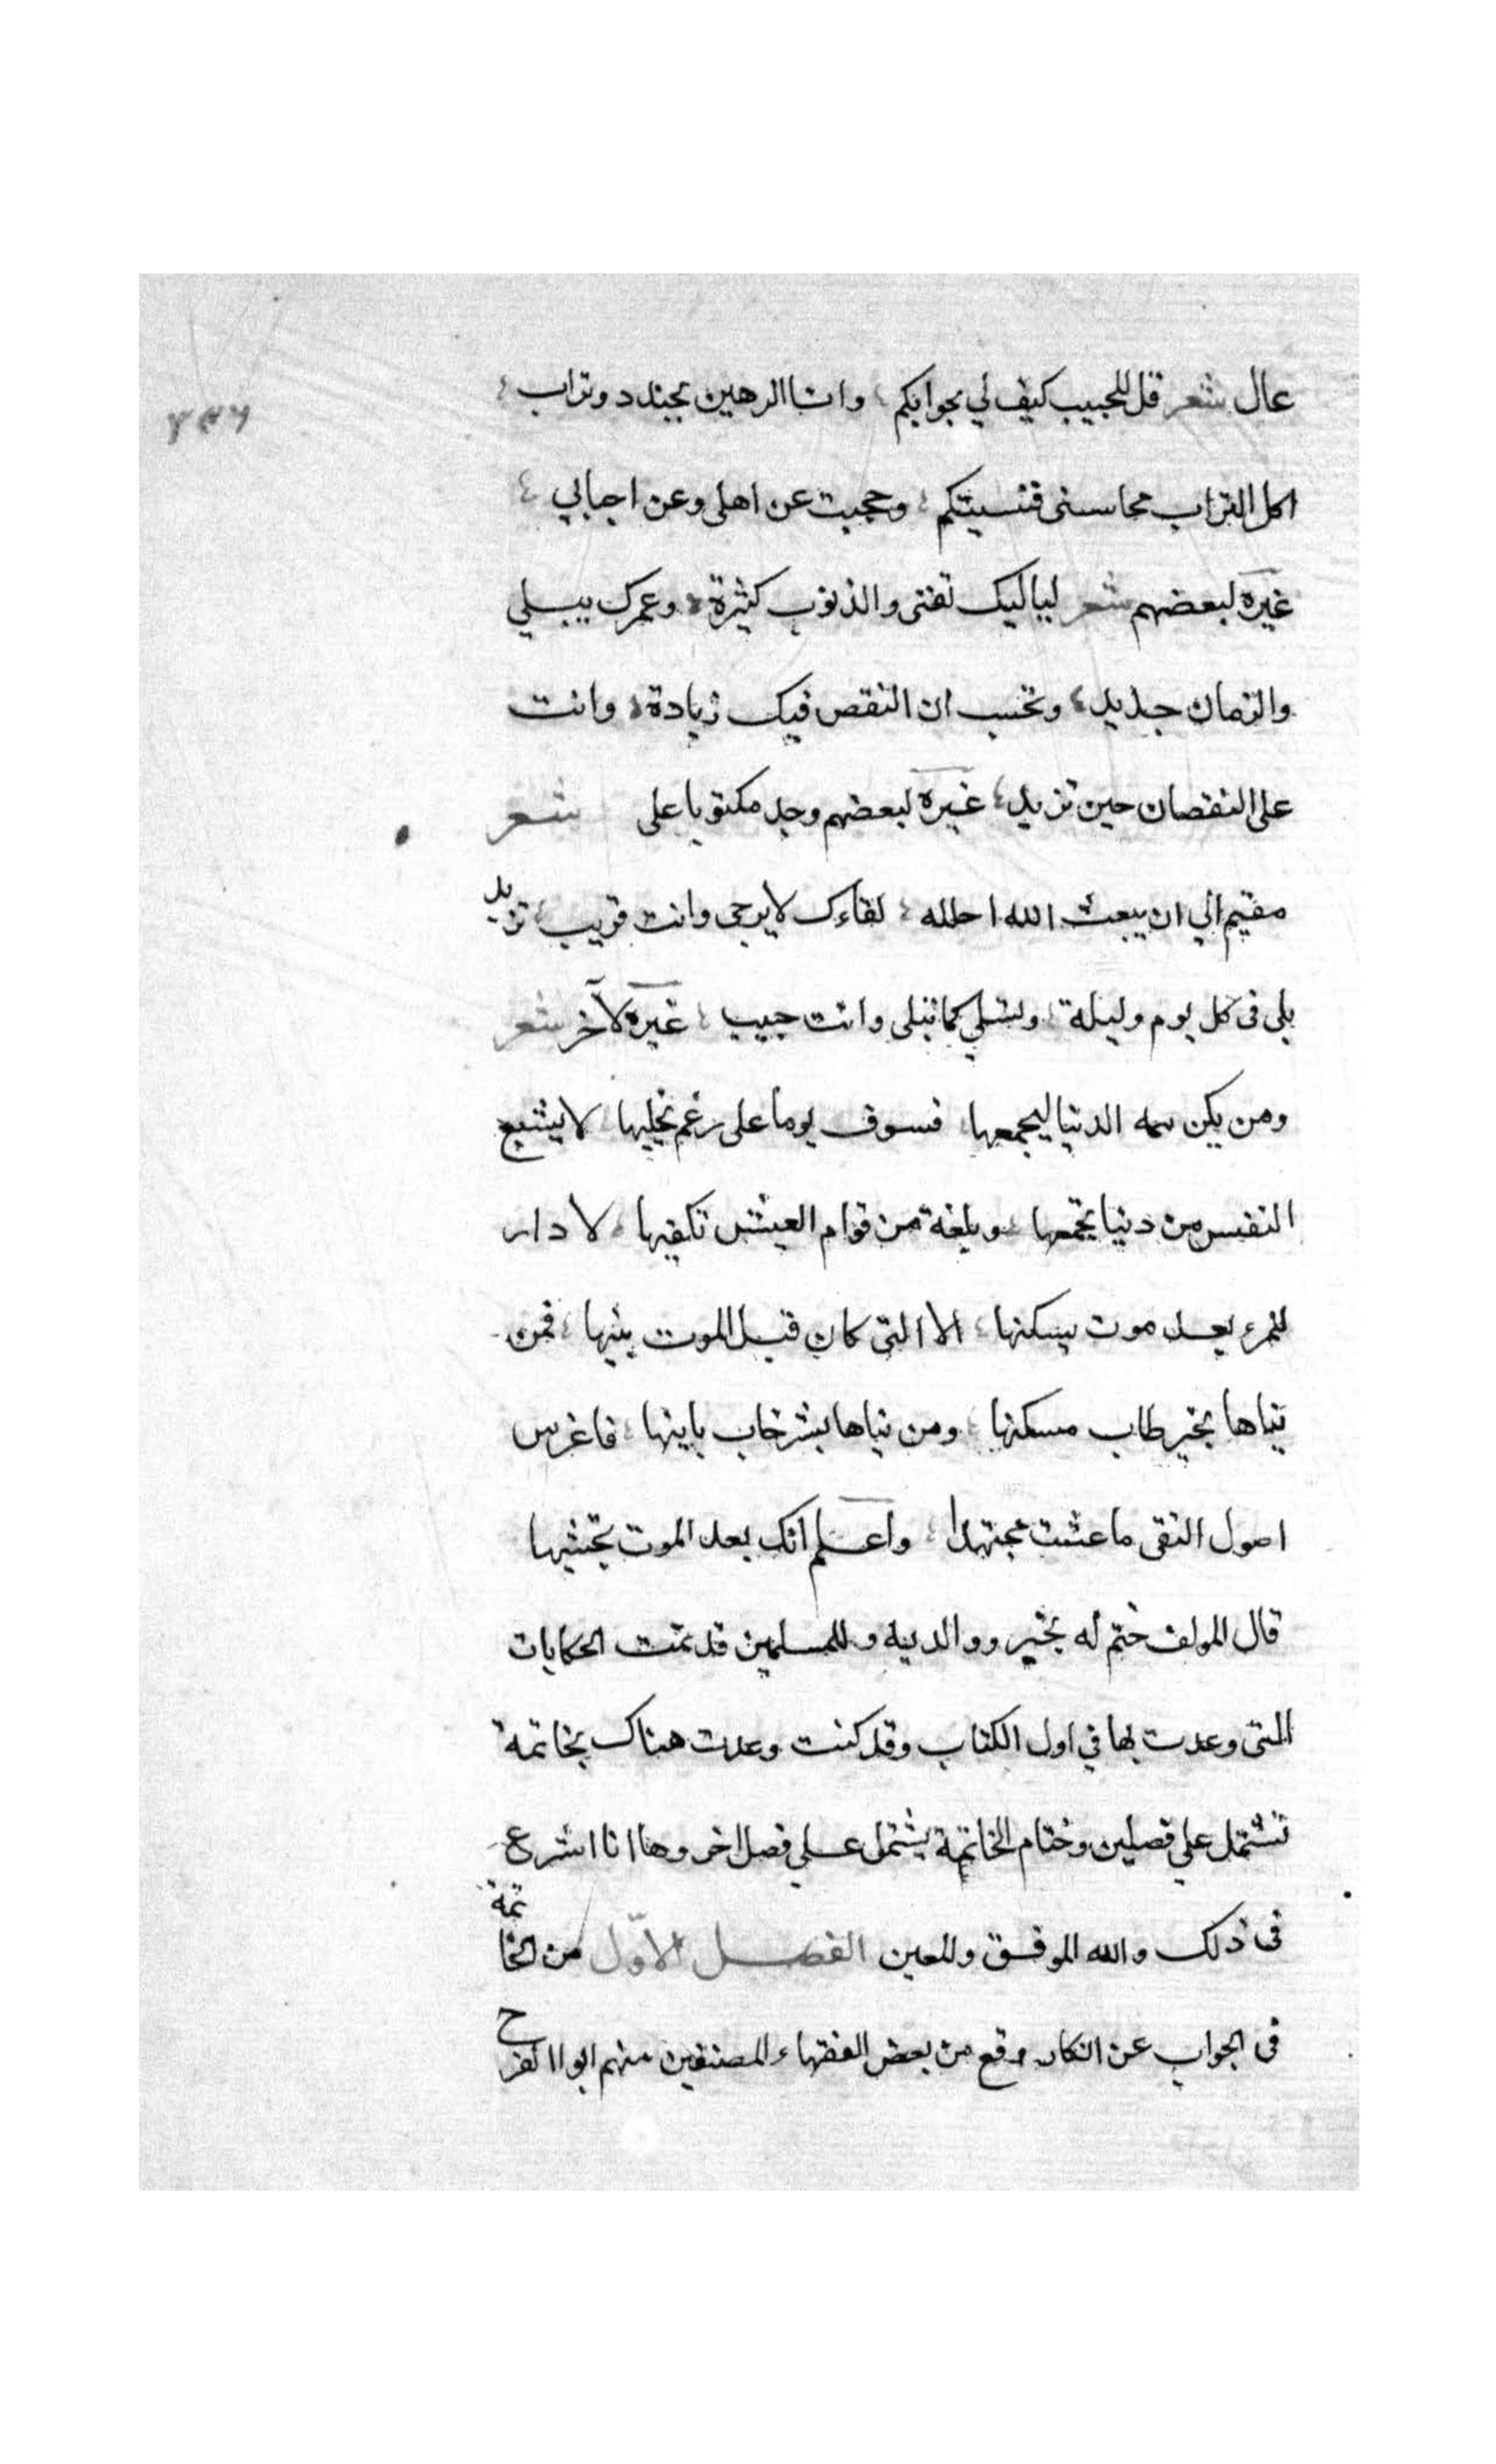 عال شعر قل للحبيب كيف لي بجوابكم وانا الرهين بجندد وتراب
اكل التراب محاسنى فنسيتكم وحجبت عن اهلى وعن احبابي
غيره لبعضهم شعر لياليك تفنى والذنوب كثيرة وعمرك يبلي
والزمان جديد وتحسب ان النقص فيك زيادة وانت
على النقصان حين تزيد غيره لبعضهم وجد مكتوبا على شعر
مقيم الي ان يبعث الله احلله لقاءك لا يرجى وانت قريب تزيد
بلى فى كل يوم وليلة وتسلي كما تبلى وانت حبيب غيره لآخر شعر
ومن يكن همه الدنيا ليجمعها فسوف يوما على رغم يخليها لا يشبع
النفس من دنيا تجمعها وبلغة من قوام العيش تكفيها لا دار
للمرء بعد موت يسكنها الا التى كان قبل الموت بينها فمن
بناها بخير طاب مسكنها ومن بناها بشر خاب بانيها فاغرس
اصول التقى ما عشت مجتهدا واعلم انك بعد الموت تجنيها
قال المولف ختم له بخير ووالديه وللمسلمين قد تمت الحكايات
التى وعدت بها في اول الكتاب وقد كنت وعدت هناك بخاتمة
تشتمل على فصلين وختام الخاتمة يشتمل على فصل اخر وها انا اشرع
فى ذلك والله الموفق والمعين الفصل الاوّل من الخاتمة
فى الجواب عن انكار وقع من بعض الفقهاء المصنفين منهم ابو الفرح